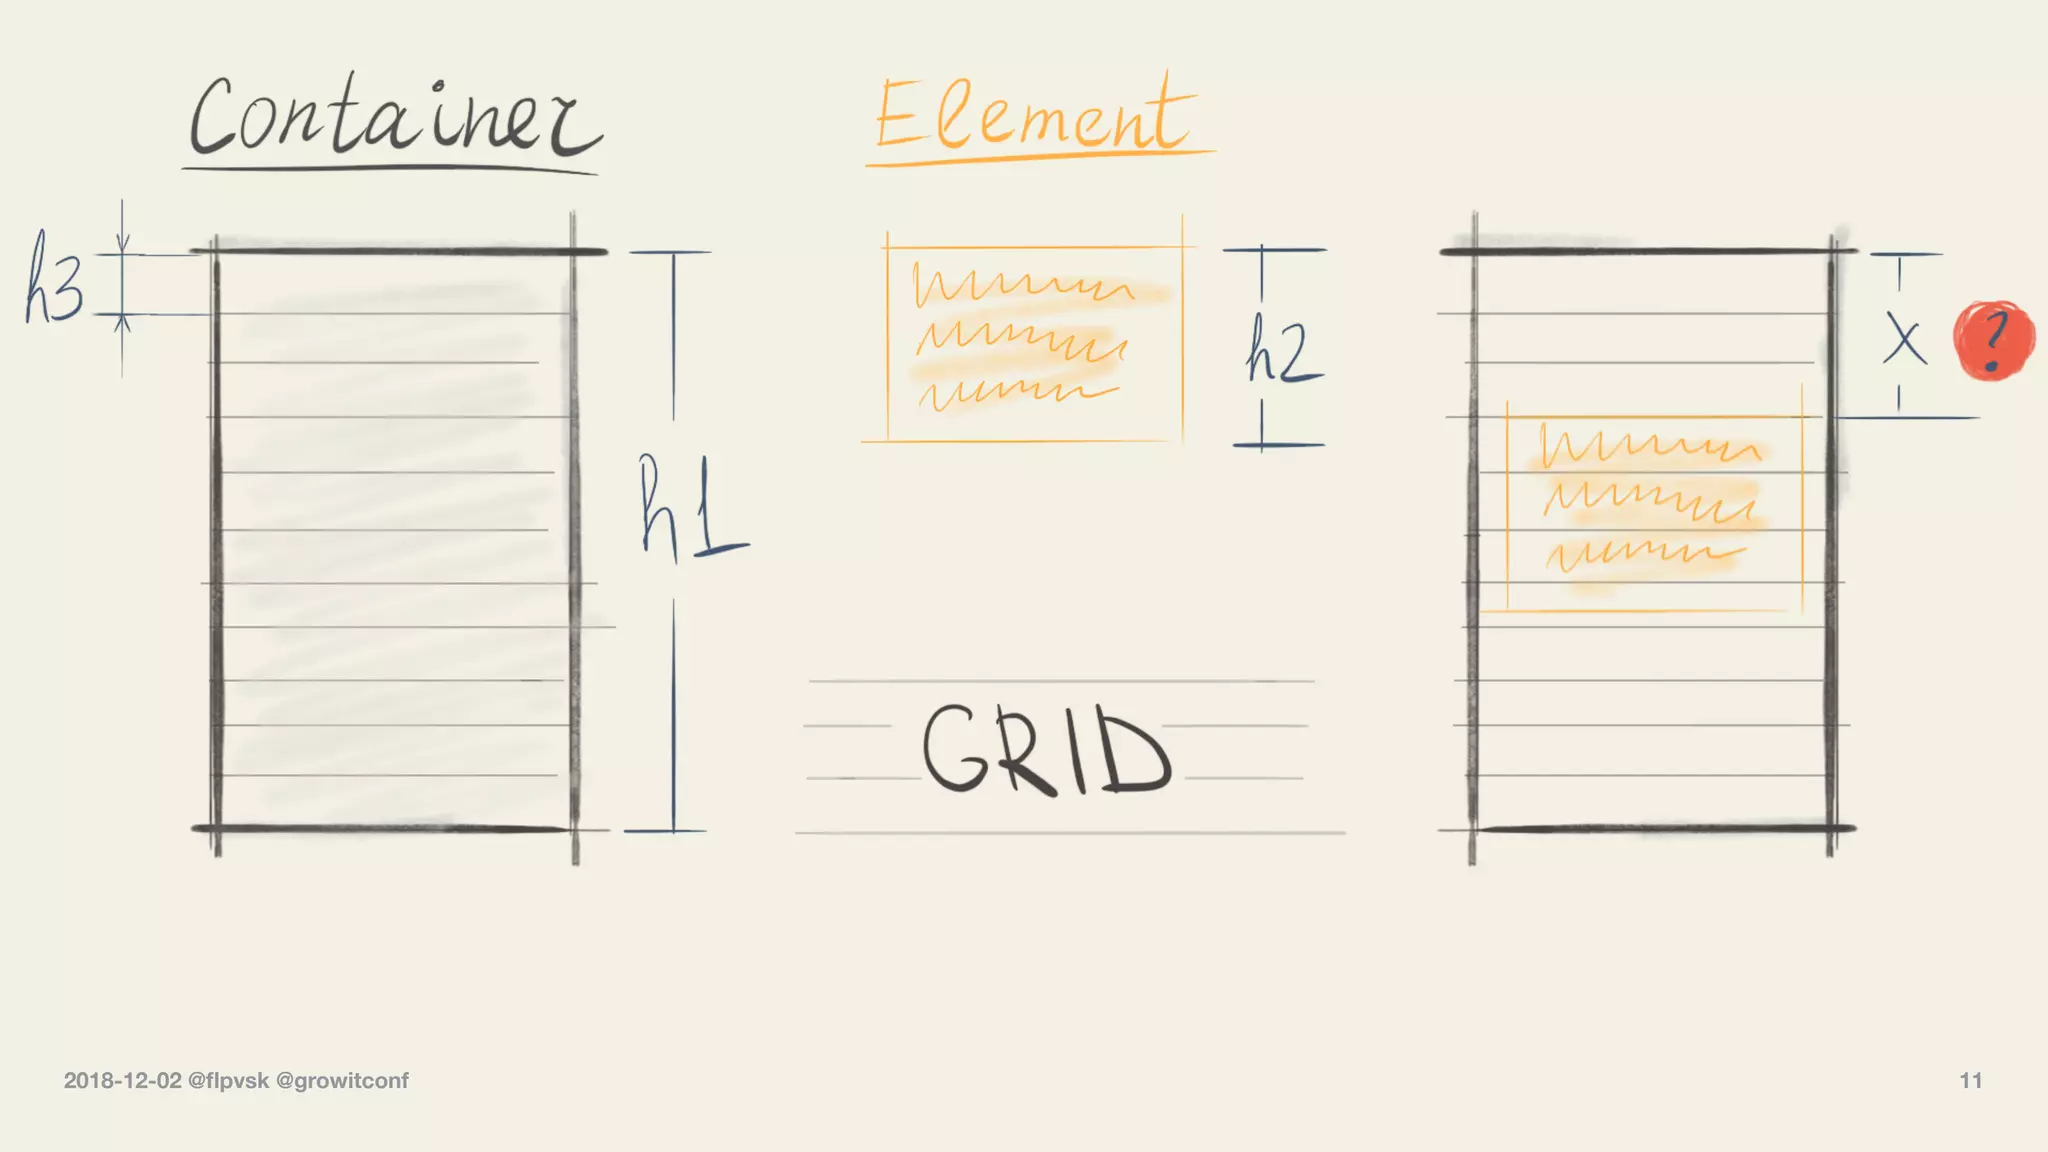 Container
Element
h3
h1
h2
x ?
GRID
2018-12-02 @flpvsk @growitconf
11